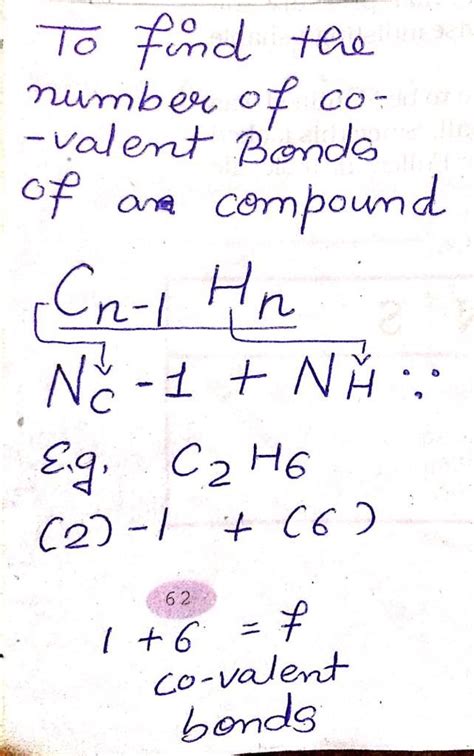 To find the
number of co-
-valent Bonds
of an compound
Cn-1 Hn
NC -1 + NH ∵
E.g. C2H6
(2)-1 + (6)
62
1 + 6 = 7
co-valent
bonds